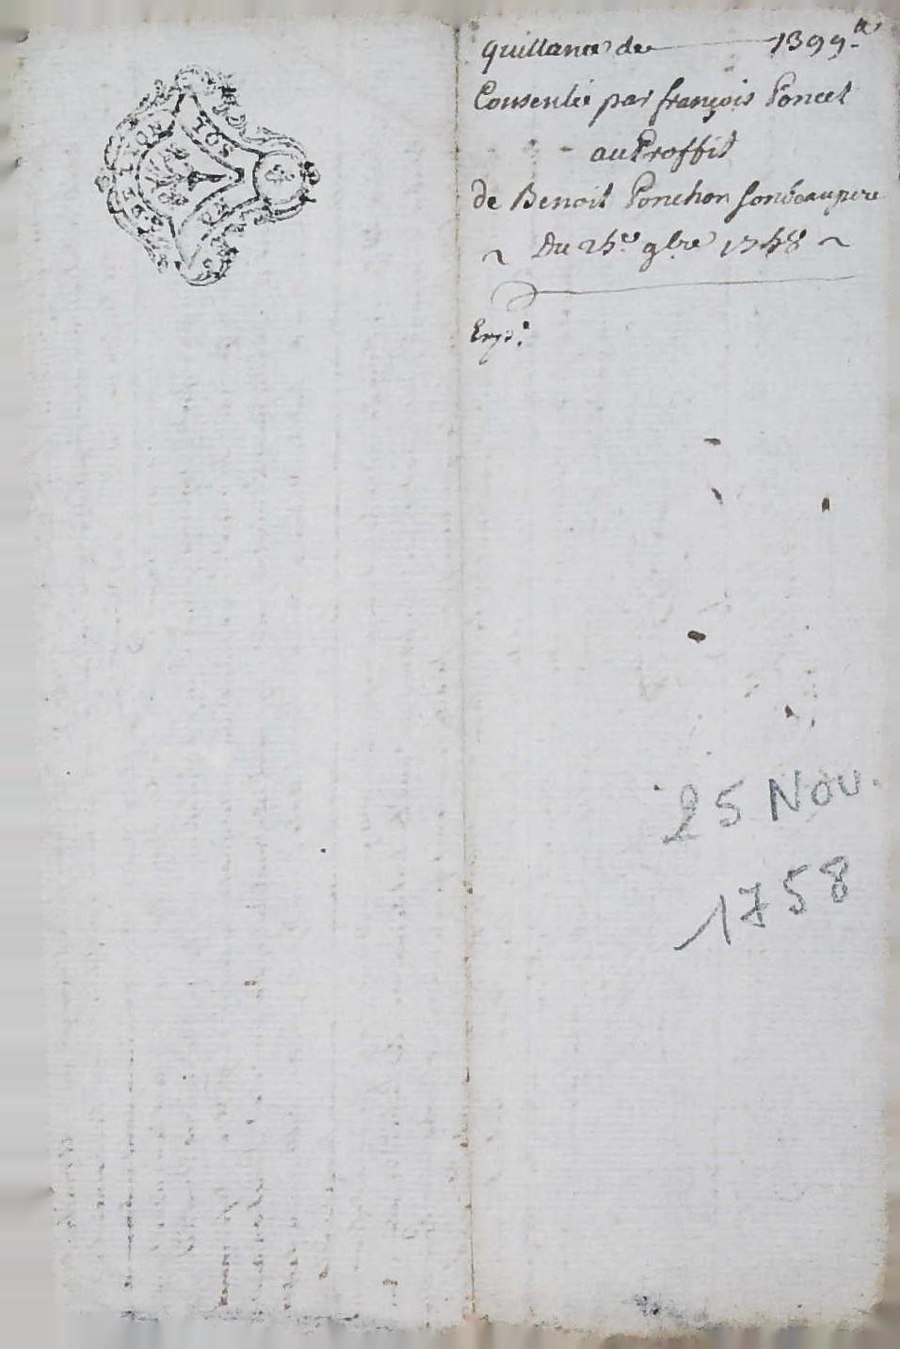 quittance de 1399 ᵗᵗ
Consentie par françois Poncet
au Proffit
de Benoit Ponchon son beaupere
~ Du 25ᵉ 9bre 1758 ~
Expᵉ
25 Nov.
1758